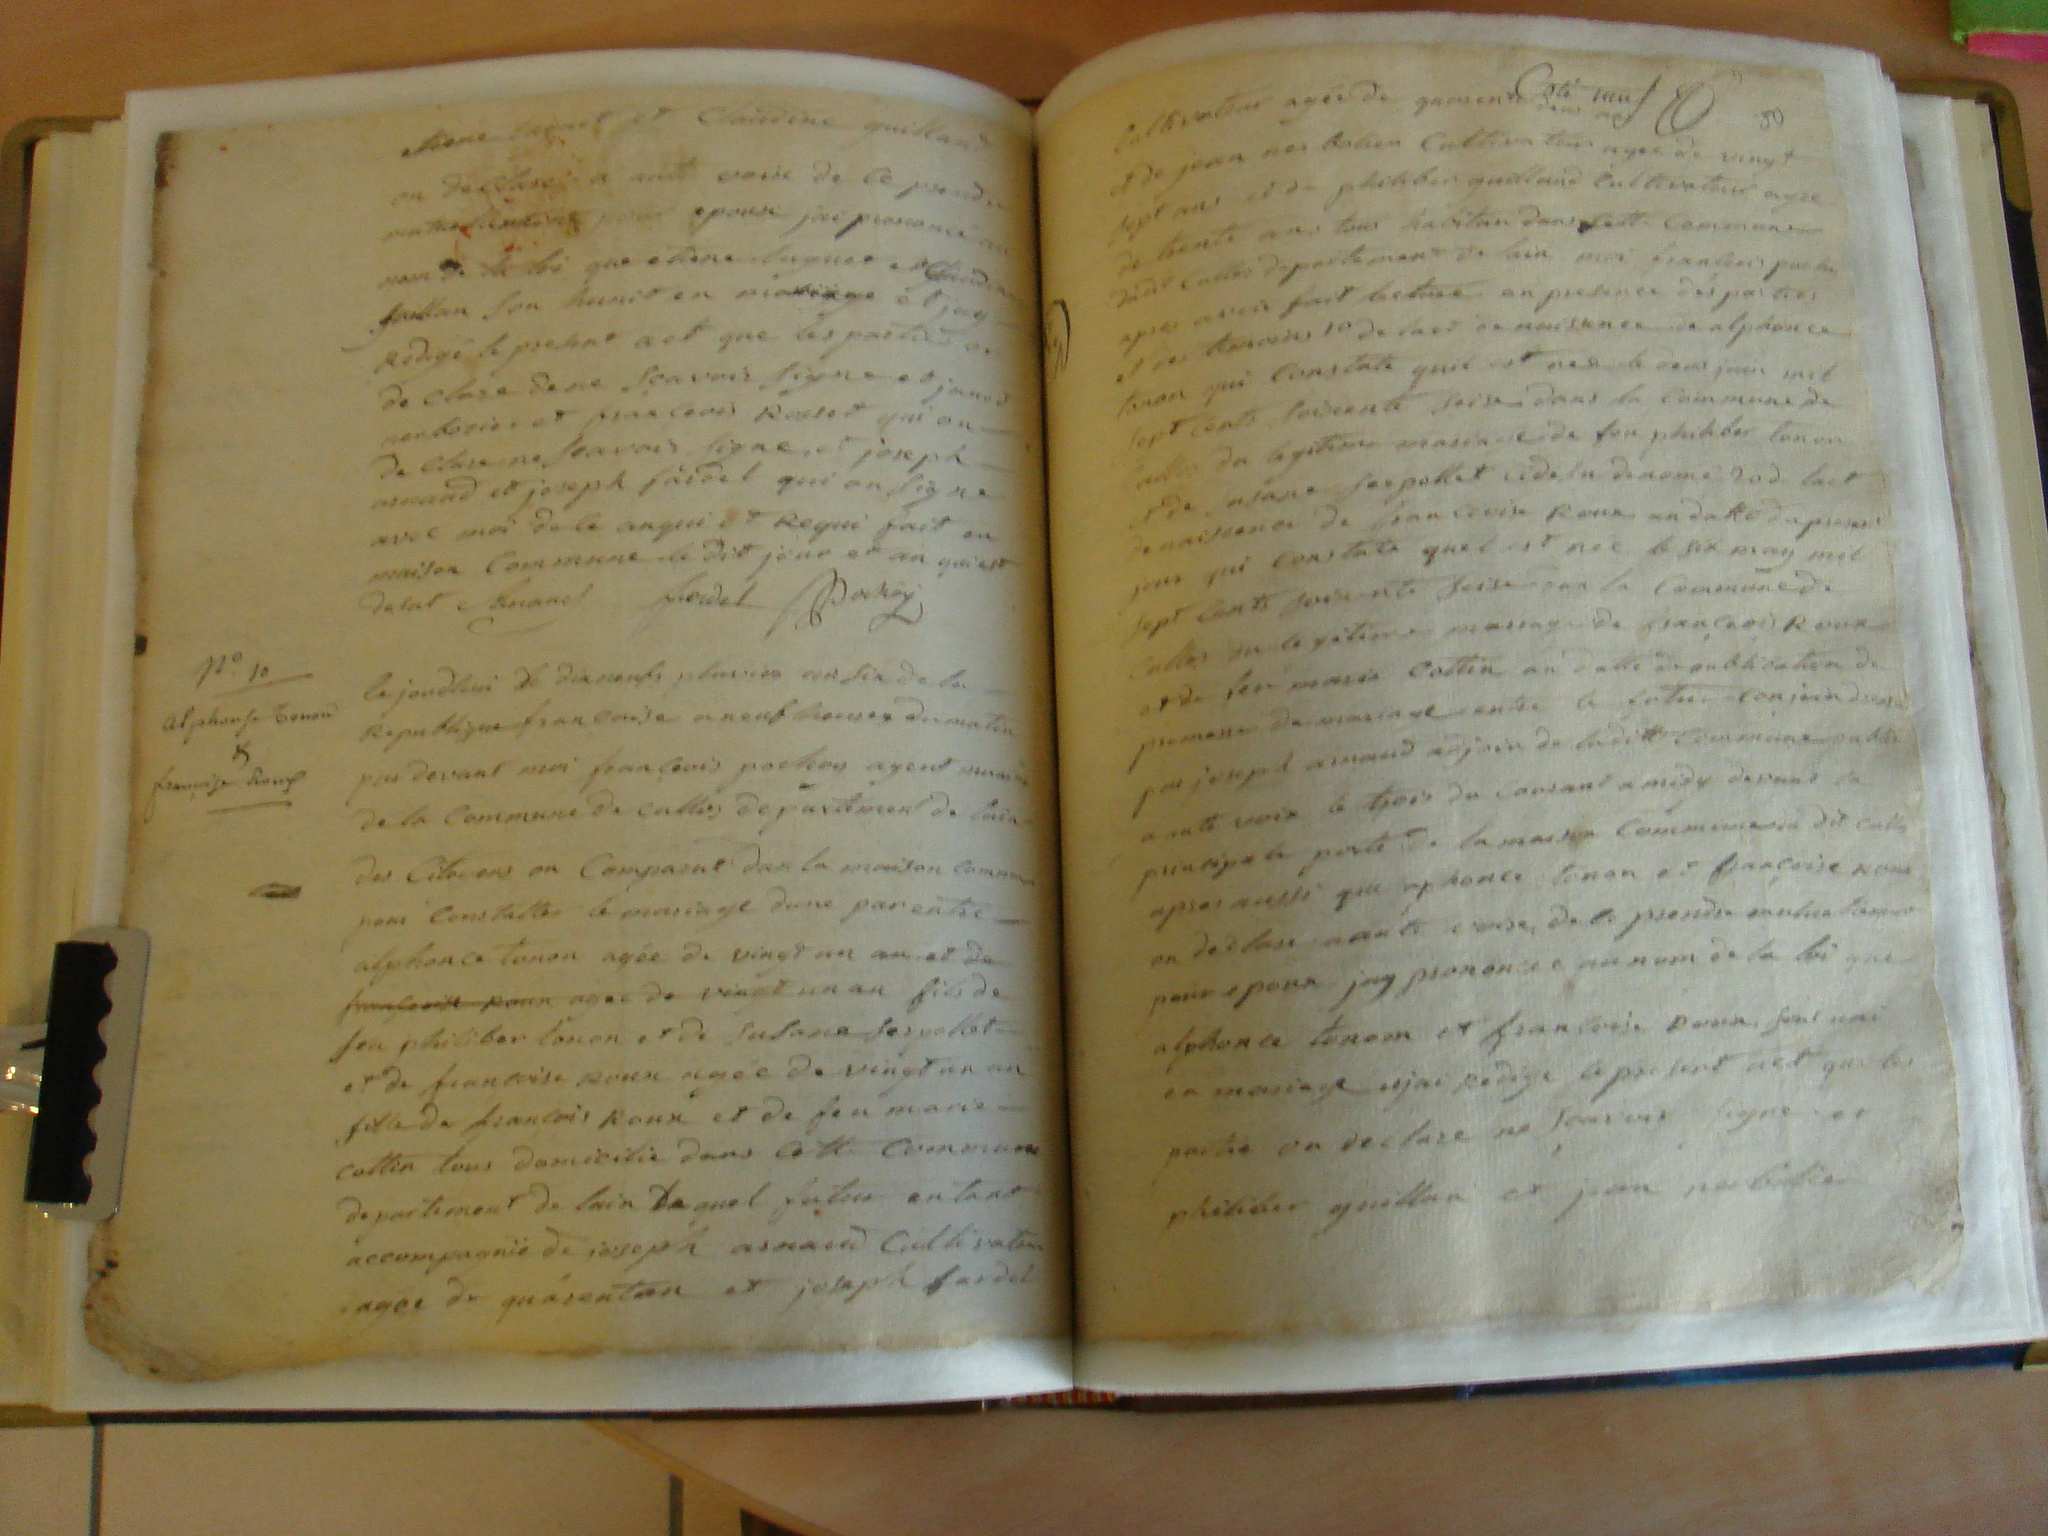 et Claudine guilland
on declaré a aute voire de ce prendre
mutuellement pour epouse jai prononcé au
nom de la loi que etiene et Claudine
guillan son hunit en mariage et jay
Redigé le present act que les parties on
de clare de ne Scavoir Signe et
nerbolier et francois Rosset qui on
de Clare ne Scavoir Signe et joseph
arnaud et joseph fardel qui on Signe
avec moi de ce anqui et Requi fait en
maison Commune le dit jour et an qui est
desut Arnaud fardel Pochoy
N° 10
alphonse Tonon
&
françoise Roux
le jourdhui dixneufs pluvios ans six de la
Republique francoise a neuf heures du matin
par devant moi francois pochoy agent
de la Commune de Culles departement de lain
des Citoyens on Comparut dan la maison commune
pour Constatter le mariage dune par entre
alphonce tonon agée de vingt un an et de
francoise roux agee de vingt un an fils de
feu philiber tonon et de Susane Serpollet
et de francoise roux agée de vingt un an
fille de francois roux et de feu marie
cottin tous domicilie dans Cette Commune
departement de lain lequel futur entant
accompagnié de joseph arnaud Cultivateur
agee de quarentan et joseph fardel
Coté neuf
50
Cultivateur agée de quarente deux an
et de jean nerbolier Cultivateur agee de vingt
sept ans et de philiber guilland Cultivateur agee
de trente ans tous habitan dans Cette Commune
dudit Culles departement de lain moi francois pochoy
apres avoir fait lecture en presence des parties
et des temoins 1° de lact de naissence de alphonce
tonon qui Constate quil est nee le deux juin mil
Sept Cents Soixente Seise dans la Commune de
Culles du legitime mariage de feu philiber tonon
et de Susane Serpollet cidesu denomé 2° de lact
de naissence de francoise Roux
jour qui Constate quel est née le six may mil
sept Cents soixente Seise dan la Commune de
Culles du legitime mariage de françois Roux
et de feu marie Cottin an datte de publication de
promesse de mariage entre le futur Conjoin
par joseph arnaud adjoin de ladite Commune publié
a aute voix le trois du Courant a midy devant la
principale porte de la maison Commune du dit Culles
apres aussi que alphonce tonon et françoise roux
on declare a aute voise de ce prendre mutuellement
pour epoux jay prononcée au nom de la loi que
alphonce tonom et francoise Roux sont uni
en mariage et jai Redige le present act que les
partie on declare ne Scavoir Signe et
philiber guillan et jean nerbolier